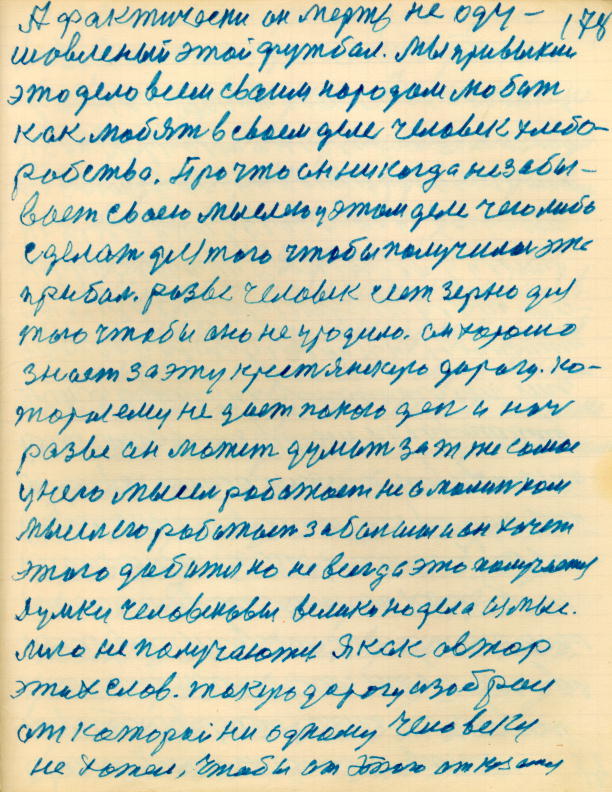 А фактически он мертв не оду- 178
шовленый этой дружбай. Мы привыкли
это дело всем своим народом любит
как любят в своем деле человек хлебо-
робство. Про что он никогда незабы-
вает своею мыслею у этом деле чего либо
сделат для того чтобы получилас эта
прибал. разве человек сеет зерно для
того чтобы оно не уродило. он хорошо
знает за эту крестянскую дорогу. ко-
торая ему не дает покою ден и ноч
разве он может думат за т же самое
у него мысел работает не о малинком
мысел его работает за большим он хочет
этого добится но не всегда это получается
Думки человековы велики но дела с мыс.
лию не получаются Я как автор
этих слов. такую дорогу изобрал
от которой ни одному человеку
не хотел, чтобы от этого отказался